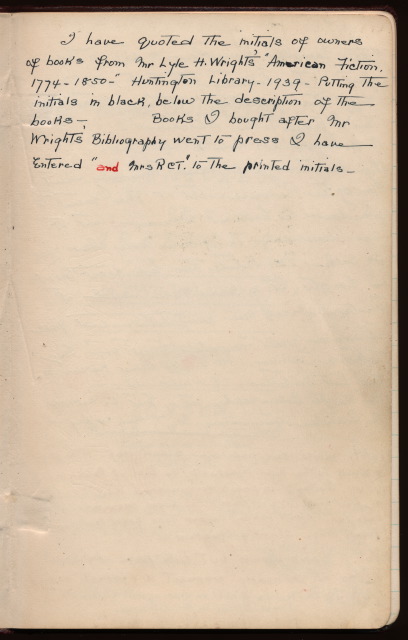 I have quoted the initials of owners
of books from Mr Lyle H. Wright's "American Fiction.
1774-1850-" Huntington Library-1939- Putting the
initials in black, below the description of the
books- Books I bought after Mr
Wright's Bibliography went to press I have
Entered "and Mrs RCT." to the printed initials-